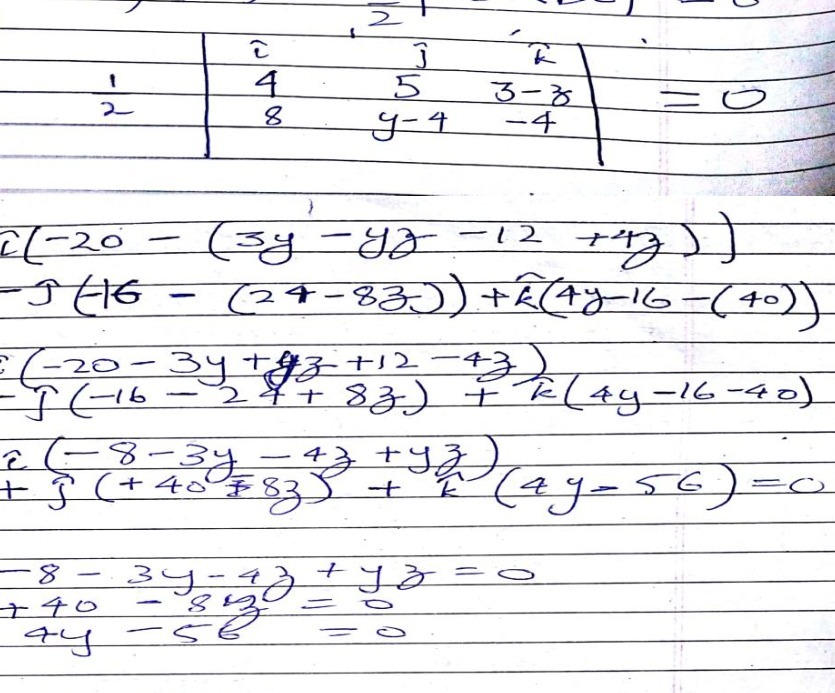 2
î ĵ k̂
1/2 | 4 5 3-z | = 0
8 y-4 -4
î(-20 - (3y - yz - 12 + 4z))
- ĵ(-16 - (24-8z)) + k̂(4y-16-(40))
î(-20 - 3y + yz + 12 - 4z)
- ĵ(-16 - 24 + 8z) + k̂(4y-16-40)
î(-8-3y - 4z + yz)
+ ĵ(+40 - 8z) + k̂(4y-56)=0
-8 - 3y - 4z + yz = 0
+40 - 8z = 0
4y - 56 = 0